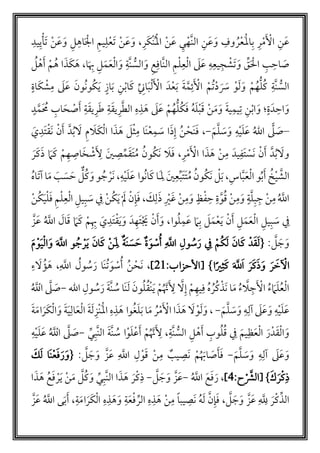 عَنِ الْأَمْرِ بِالْمَعْرُوفِ وَعَنِ النَّهْيِ عَنْ الْمُنْكَرِ، وَعَنْ تَعْلِيمِ الْجَاهِلِ وَعَنْ تَأْيِيدِ
صَاحِبِ الْحَقِّ وَتَشْجِيعِهِ عَلَى الْعِلْمِ النَّافِعِ وَالسُّنَّةِ وَالْعَمَلِ بِهَا، هَكَذَا هُمْ أَهْلُ
السُّنَّةِ كُلُّهُمْ وَلَوْ سَرَدْتُمُ الْأَئِمَّةَ عَدَّ بَعْدَ الْأَلْبَانِيِّ كَابْنِ بَازٍ يَكُونُونَ عَلَى مِشْكَاةٍ
وَاحِدَةٍ؛ وَابْنِ تَيْمِيَةَ وَمَنْ قَبْلَهُ فَكُلُّهُمْ عَلَى هَذِهِ الطَّرِيقَةِ طَرِيقَةِ أَصْحَابِ مُحَمَّدٍ
- صَلَّى اللهُ عَلَيْهِ وَسَلَّمَ-، فَنَحْنُ إِذَا سَمِعْنَا مِثْلَ هَذَا الْكَلَامِ لَابُدَّ أَنْ نَقْتَدِيَ
وَلَابُدَّ أَنْ نَسْتَفِيدَ مِنْ هَذَا الْأَمْرِ، فَلَا نَكُونُ مُتَقَمِّصِينَ لِأَشْخَاصِهِمْ كَمَا ذَكَرَ
الشَّيْخُ أَبُو الْعَبَّاسِ، بَلْ نَكُونُ مُتَّبِعِينَ لِمَا كَانُوا عَلَيْهِ، لِرَجُلٍ وَكُلٌّ حَسَبَ مَا آتَاهُ
اللهُ مِنْ جِبِلَّةٍ وَمِنْ قُوَّةِ حِفْظٍ وَمِنْ غَيْرِ ذَلِكَ، فَإِنْ لَمْ يَكُنْ فِي سَبِيلِ الْعِلْمِ فَلْيَكُنْ
فِي سَبِيلِ الْعَمَلِ أَنْ يَعْمَلَ بِمَا عَلِمُوا، وَأَنْ يَجْتَهِدَ وَيَقْتَدِيَ بِهِمْ كَمَا قَالَ اللهُ عَزَّ
وَجَلَّ: {لَقَدْ كَانَ لَكُمْ فِي رَسُولِ اللَّهِ أُسْوَةٌ حَسَنَةٌ لِمَنْ كَانَ يَرْجُو اللَّهَ وَالْيَوْمَ
الْآخِرَ وَذَكَرَ اللَّهَ كَثِيرًا} [الأحزاب:21]، - نَحْنُ أُسْوَتُنَا رَسُولُ اللهِ، هَؤُلَاءِ
الْعُلَمَاءُ الْأَجِلَّاءُ مَا نَذْكُرُهُمْ فِيهِمْ إِلَّا لِأَنَّهُمْ يَنْقُلُونَ لَنَا سُنَّةَ رَسُولِ اللهِ - صَلَّى اللهُ
عَلَيْهِ وَعَلَى آلِهِ وَسَلَّمَ -، وَلَوْلَا هَذَا الْأَمْرُ مَا بَلَغُوا هَذِهِ الْمَنْزِلَةَ الْعَالِيَةَ وَالْكَرَامَةَ
وَالْقَدْرَ الْعَظِيمَ فِي قُلُوبِ أَهْلِ السُّنَّةِ، لِأَنَّهُمْ أَعْلَوْا سُنَّةَ النَّبِيِّ - صَلَّى اللهُ عَلَيْهِ
وَعَلَى آلِهِ وَسَلَّمَ- فَأَصَابَهُمْ نَصِيبٌ مِنْ قَوْلِ اللهِ عَزَّ وَجَلَّ: {وَرَفَعْنَا لَكَ
ذِكْرَكَ} [الشَّرْح:4]، رَفَعَ اللهُ -عَزَّ وَجَلَّ- ذِكْرَ هَذَا النَّبِيِّ وَكُلَّ مَنْ يَرْفَعُ هَذَا
الذِّكْرَ لِلهِ عَزَّ وَجَلَّ، فَإِنَّ لَهُ نَصِيباً مِنْ هَذِهِ الرِّفْعَةِ وَهَذِهِ الْكَرَامَةِ، أَبَى اللهُ عَزَّ